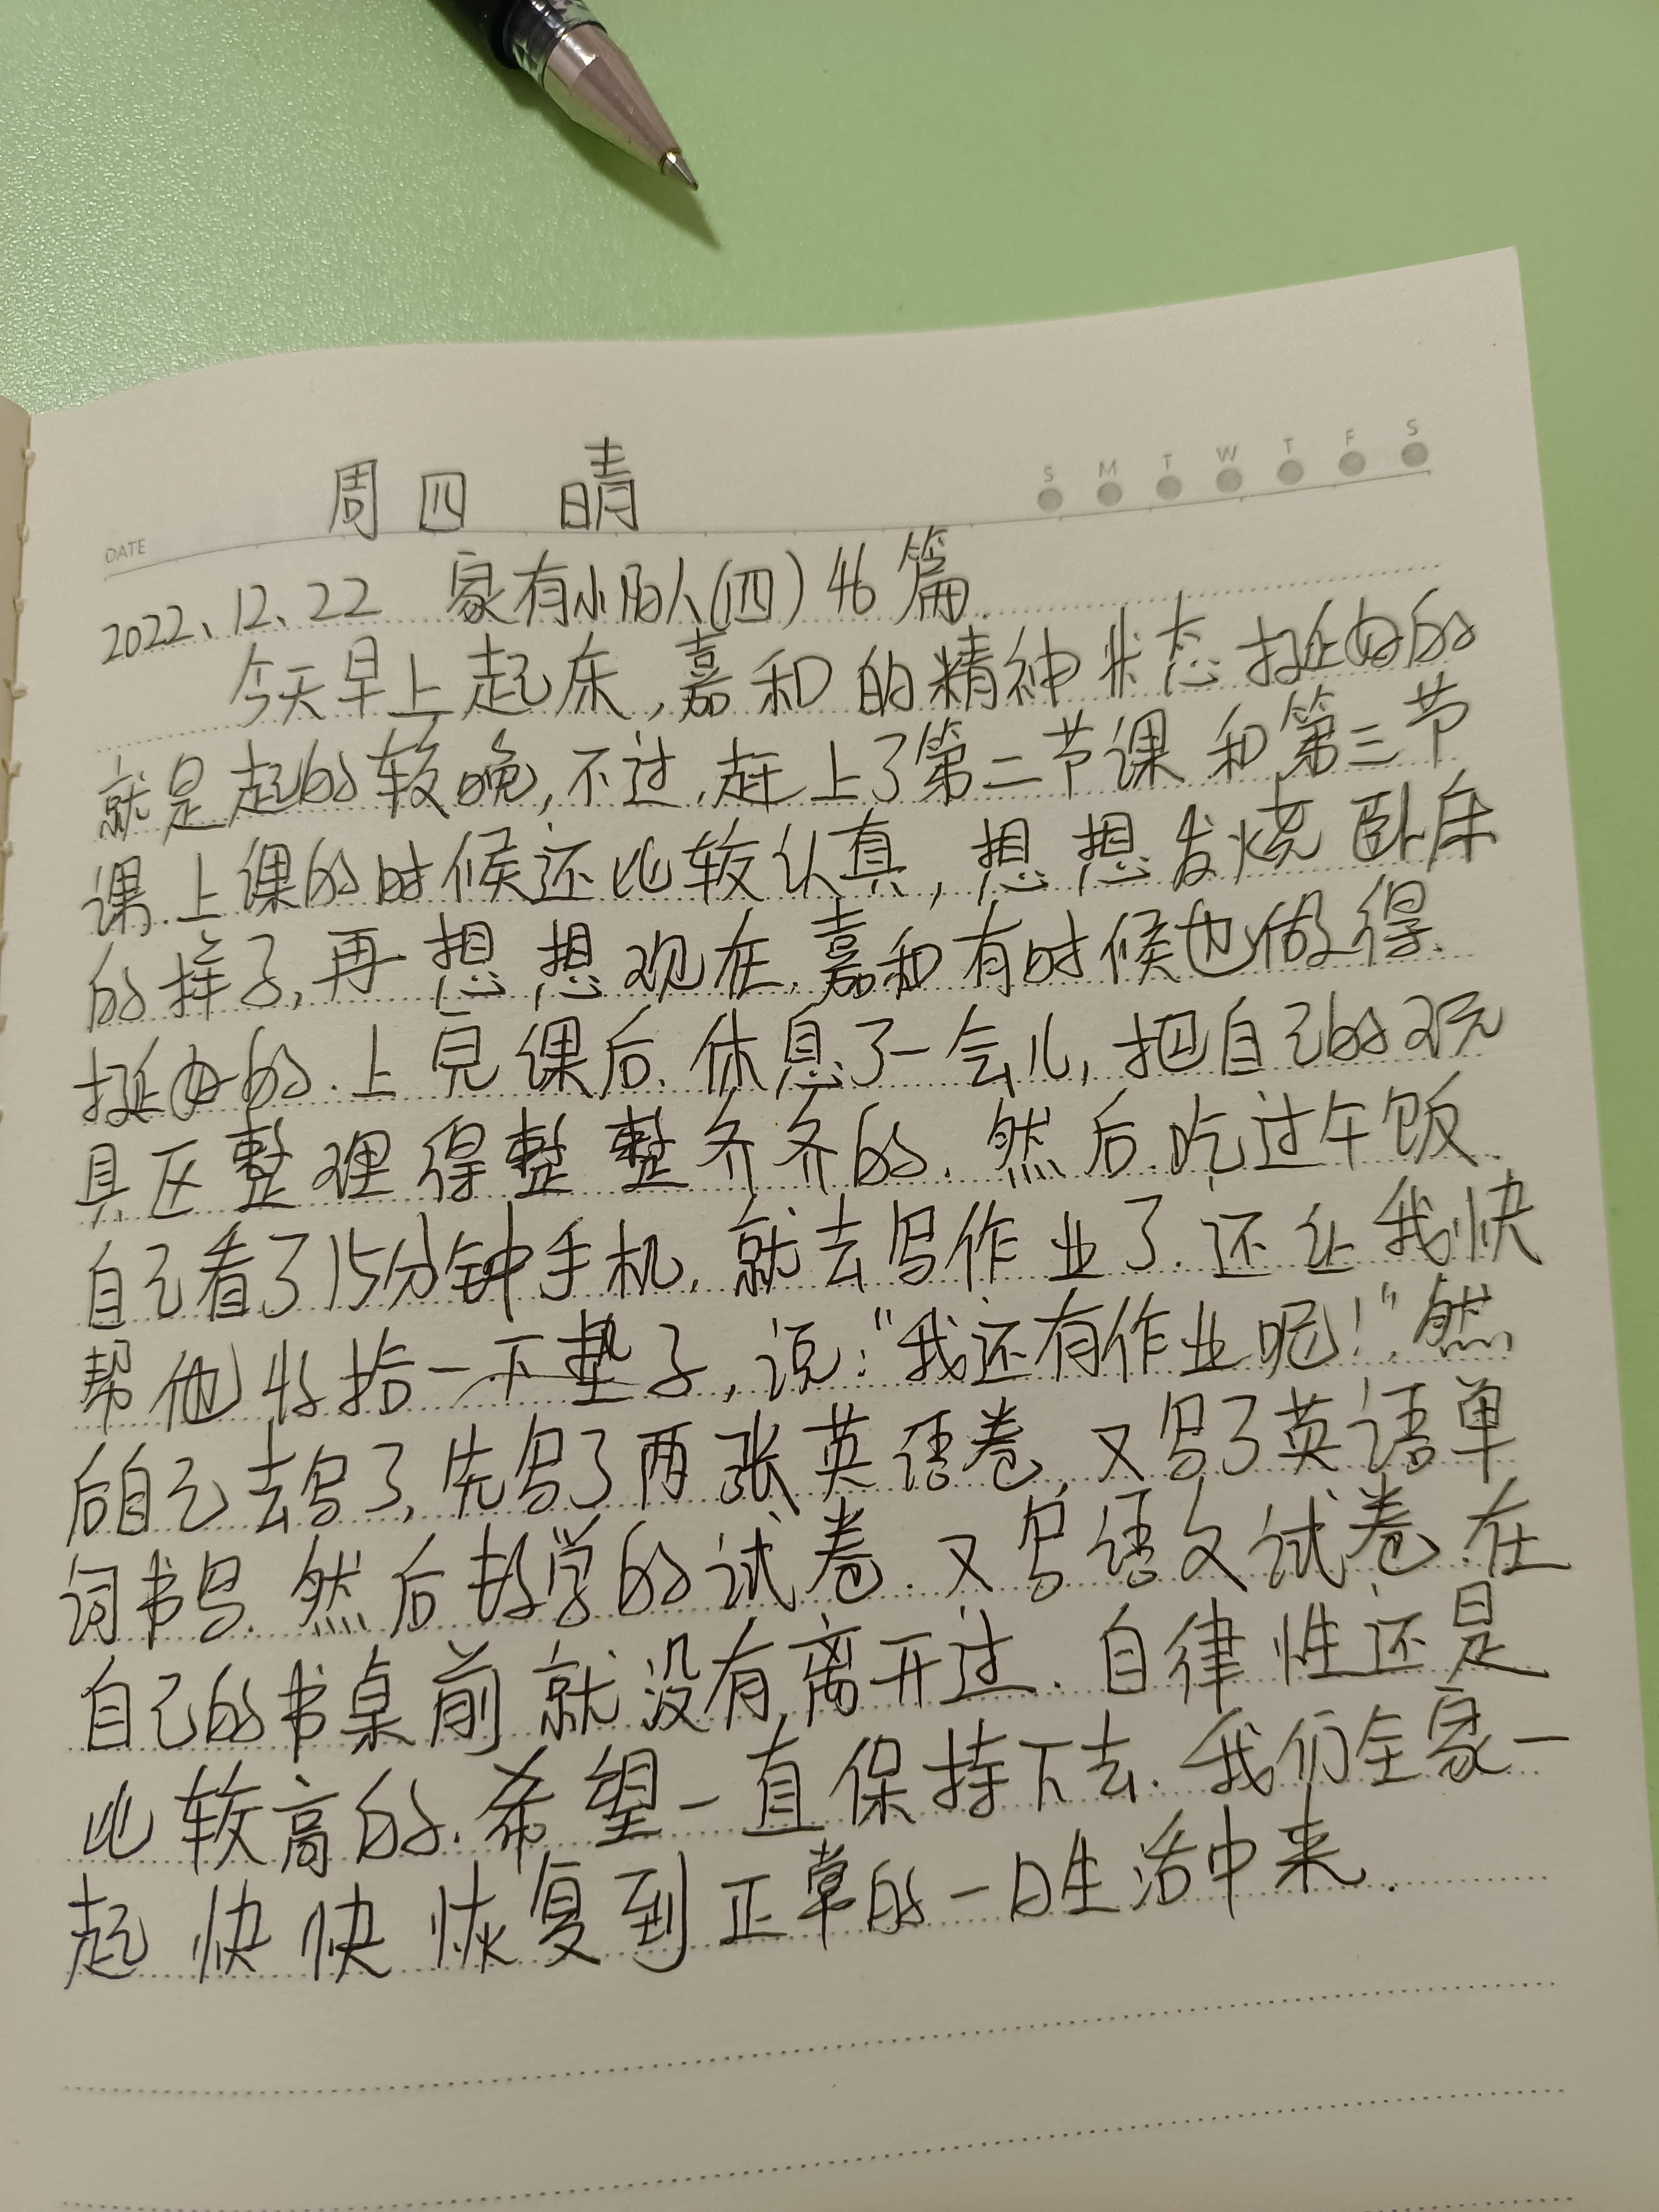 周四 晴
S M T W T F S
DATE
2022、12、22 家有小阳人(四)46篇
今天早上起床,嘉和的精神状态挺好的
就是起的较晚,不过,赶上了第二节课和第三节
课.上课的时候还比较认真,想想发烧卧床
的样子,再想想现在,嘉和有时候也做得
挺好的.上完课后.休息了一会儿,把自己的玩
具区整理得整整齐齐的.然后吃过午饭.
自己看了15分钟手机,就去写作业了.还让我快
帮他收拾一下垫子,说:“我还有作业呢!”然
后自己去写了,先写了两张英语卷,又写了英语单
词书写.然后数学的试卷.又写语文试卷.在
自己的书桌前就没有离开过.自律性还是
比较高的.希望一直保持下去.我们全家一
起快快恢复到正常的一日生活中来.